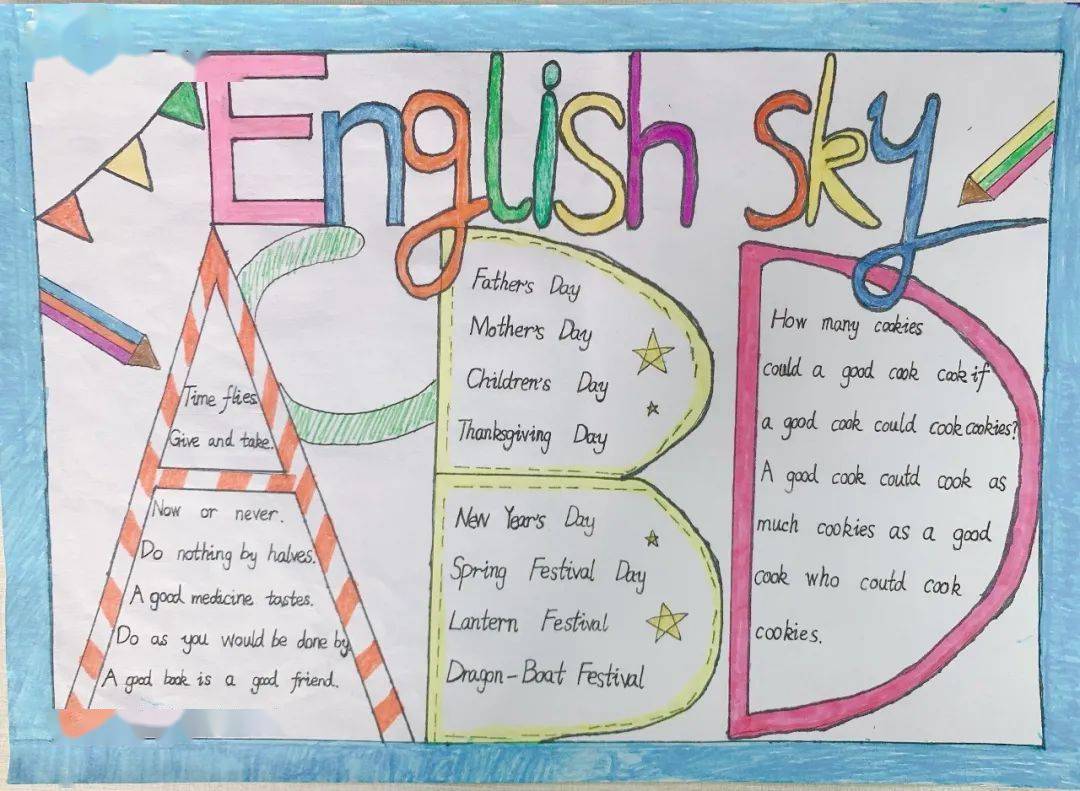 English sky
Time flies.
Give and take.
Now or never.
Do nothing by halves.
A good medicine tastes.
Do as you would be done by
A good book is a good friend.
Father's Day
Mother's Day
Children's Day
Thanksgiving Day
New Year's Day
Spring Festival Day
Lantern Festival
Dragon-Boat Festival
How many cookies
could a good cook cook if
a good cook could cook cookies?
A good cook coutd cook as
much cookies as a good
cook who coutd cook
cookies.